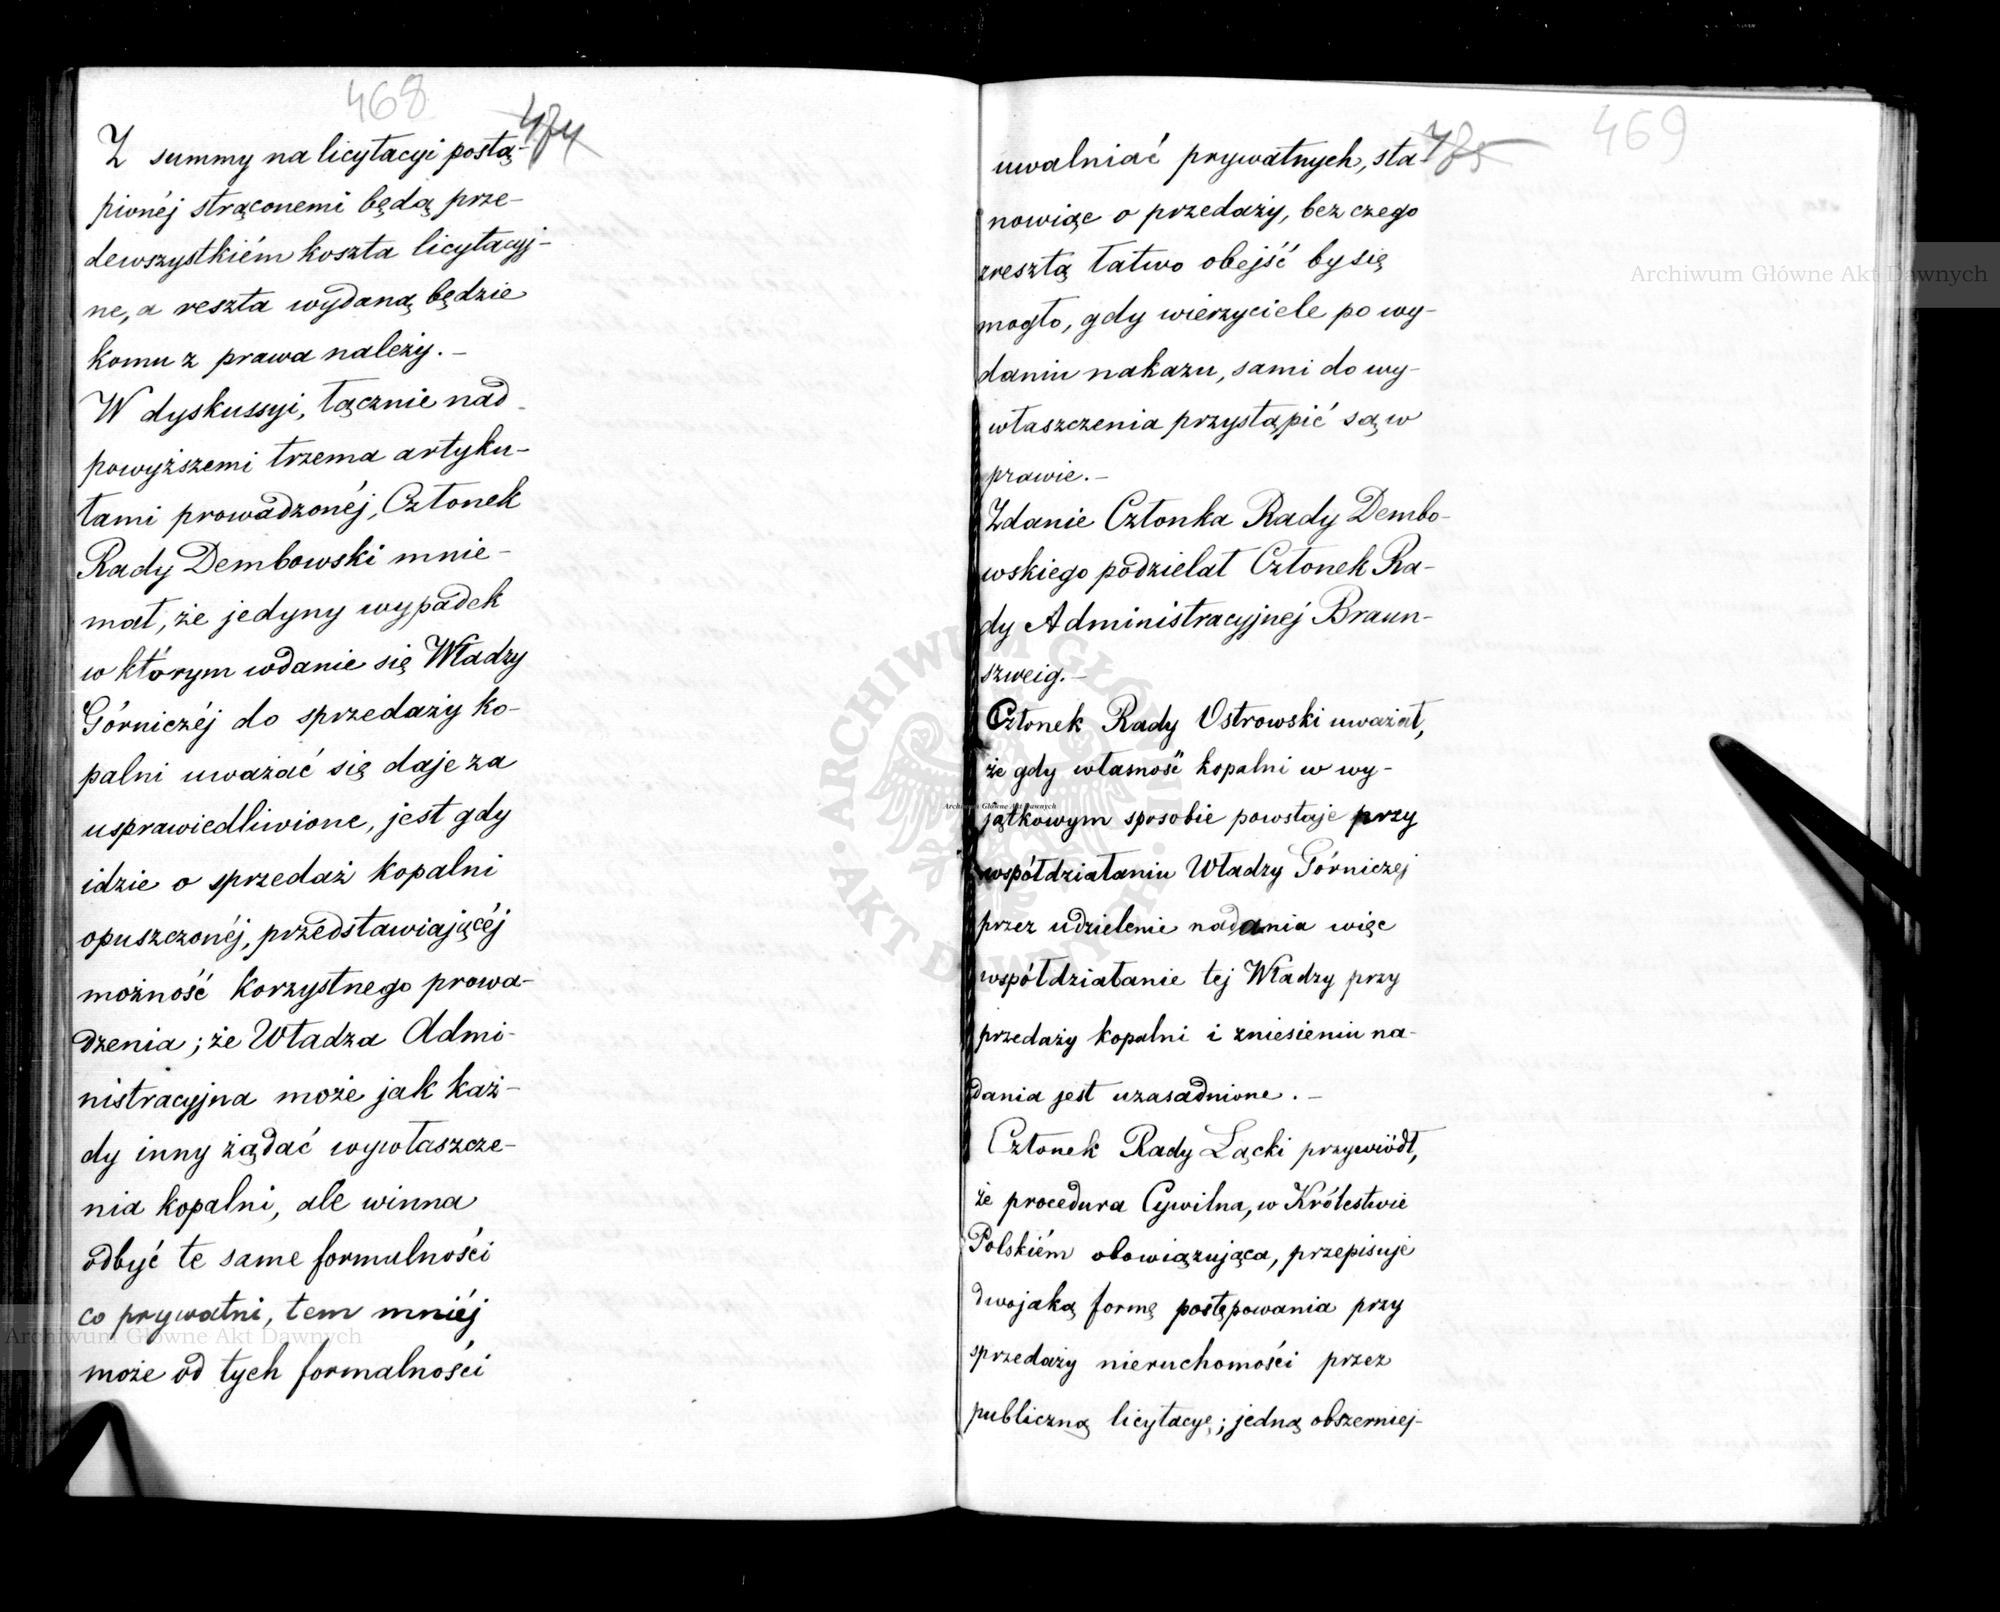 468
484
Z summy na licytacyi postą-
pionéj strąconemi będą prze-
dewszystkiém koszta licytacyj-
ne, a reszta wydaną będzie
komu z prawa należy. –
W dyskussyi, łącznie nad
powyższemi trzema artyku-
łami prowadzonéj, Członek
Rady Dembowski mnie-
mał, że jedyny wypadek
w którym wdanie się Władzy
Górniczéj do sprzedaży ko-
palni uważać się daje za
usprawiedliwione, jest gdy
idzie o sprzedaż kopalni
opuszczonéj, przedstawiającéj
możność korzystnego prowa-
dzenia; że Władza Admi-
nistracyjna może jak każ-
dy inny żądać wywłaszcze-
nia kopalni, ale winna
odbyć te same formalności
co prywatni, tem mniéj
może od tych formalności
469
485
uwalniać prywatnych, sta-
nowiąc o przedaży, bez czego
zresztą łatwo obejść by się
mogło, gdy wierzyciele po wy-
daniu nakazu, sami do wy-
właszczenia przystąpić są w
prawie. –
Zdanie Członka Rady Dembo-
wskiego podzielał Członek Ra-
dy Administracyjnej Braun-
szweig. –
Członek Rady Ostrowski uważał,
że gdy własność kopalni w wy-
jątkowym sposobie powstaje przy
współdziałaniu Władzy Górniczej
przez udzielenie nadania więc
współdziałanie tej Władzy przy
przedaży kopalni i zniesieniu na-
dania jest uzasadnione. –
Członek Rady Łącki przywiódł,
że procedura Cywilna, w Królestwie
Polskiém obowiązująca, przepisuje
dwojaką formę postępowania przy
sprzedaży nieruchomości przez
publiczną licytacyę; jedną obszerniej-
Archiwum Główne Akt Dawnych
Archiwum Główne Akt Dawnych
Archiwum Główne Akt Dawnych
ARCHIWUM GŁÓWNE · AKT DAWNYCH ·